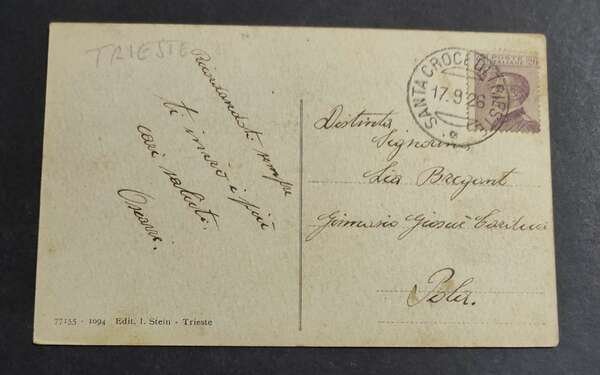 TRIESTE
Ricordandoti sempre
ti invio i più
cari saluti.
SANTA CROCE DI TRIESTE
17.9.26
Distinta
Signorina
Lia Bregant
Ginnasio Giosuè Carducci
Pola.
77155 - 1094 Edit. I. Stein - Trieste